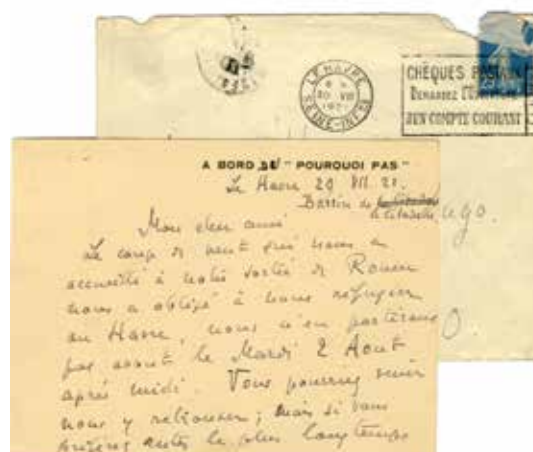 LE HAVRE
30 VII
SEINE-INFRE
CHÈQUES POSTAUX
DEMANDEZ L'OUVERTURE
D'UN COMPTE COURANT
A BORD DU " POURQUOI PAS "
Le Havre 29 VII. 21.
Bassin de
la Citadelle
Mon cher ami
Le coup de vent qui nous a
accueilli à notre sortie de Rouen
nous a obligé à nous réfugier
au Havre, nous n'en partirons
pas avant le Mardi 2 Aout
après midi. Vous pourriez venir
nous y retrouver; mais si vous
le plus longtemps